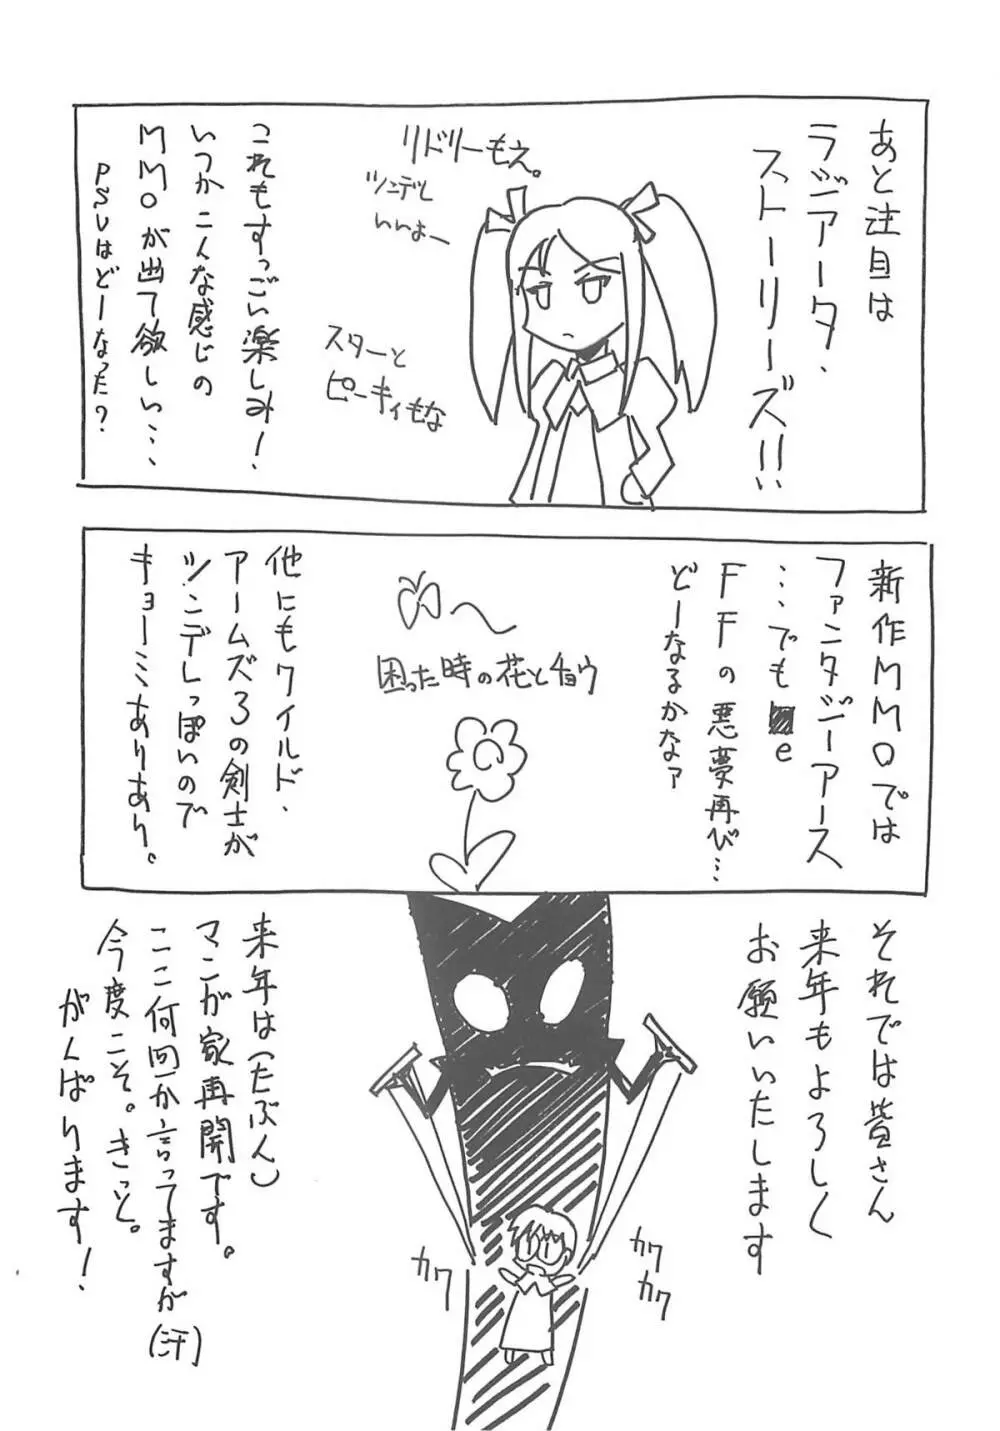 あと注目は
ラジアータ・
ストーリーズ!!
リドリーもえ。
ツンデレ
いいよー
スターと
ピーキィもな
これもすっごい楽しみ!
いつかこんな感じの
MMOが出て欲しい…
PSUはどーなった?
新作MMOでは
ファンタジーアース
…でも■e
FFの悪夢再び…
どーなるかなァ
困った時の花とチョウ
他にもワイルド・
アームズ3の剣士が
ツンデレっぽいので
キョーミありあり。
それでは皆さん
来年もよろしく
お願いいたします
カク
カク
カク
来年は(たぶん)
マンガ家再開です。
ここ何回か言ってますが(汗)
今度こそ。きっと。
がんばります!